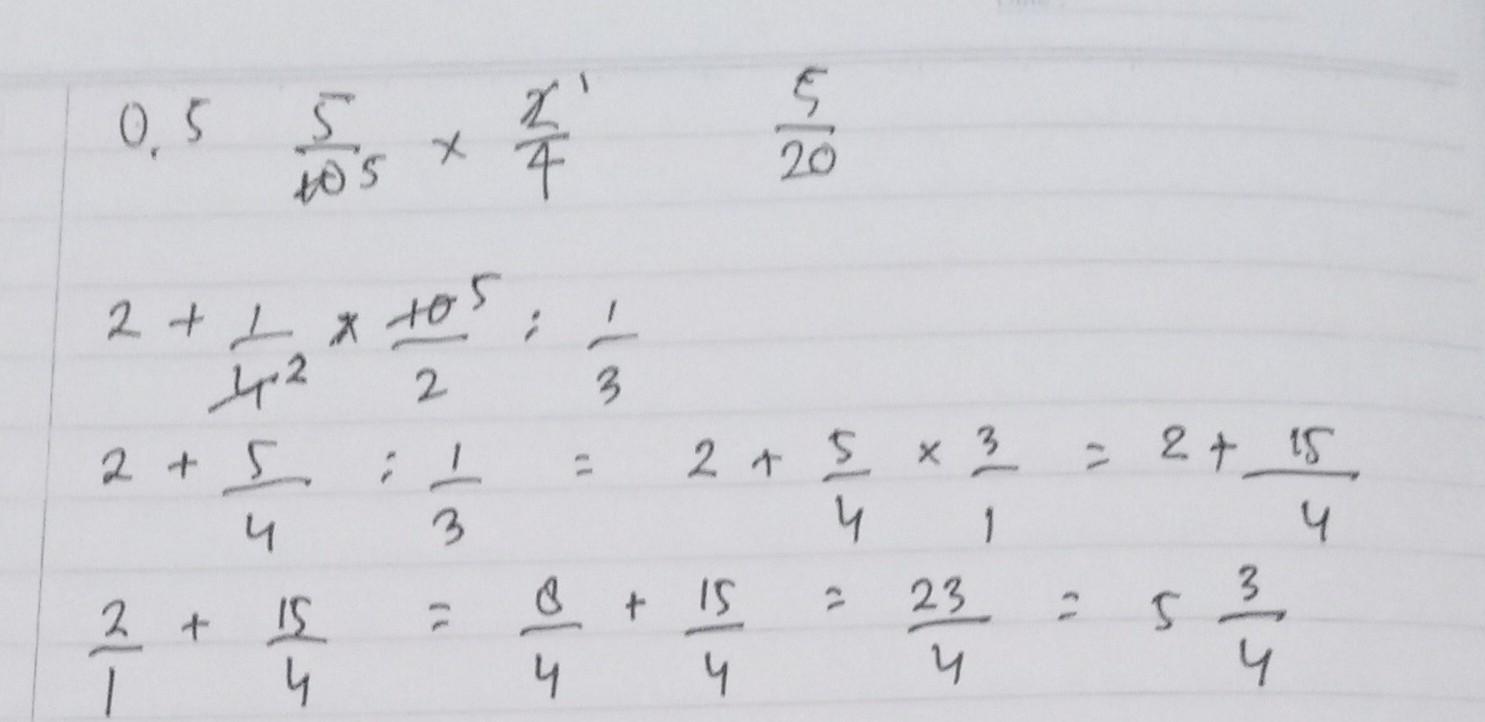 0,5 5/10 5 × 2/4 1 5/20
2 + 1/4 2 × 10 5/2 : 1/3
2 + 5/4 : 1/3 = 2 + 5/4 × 3/1 = 2 + 15/4
2/1 + 15/4 = 8/4 + 15/4 = 23/4 = 5 3/4